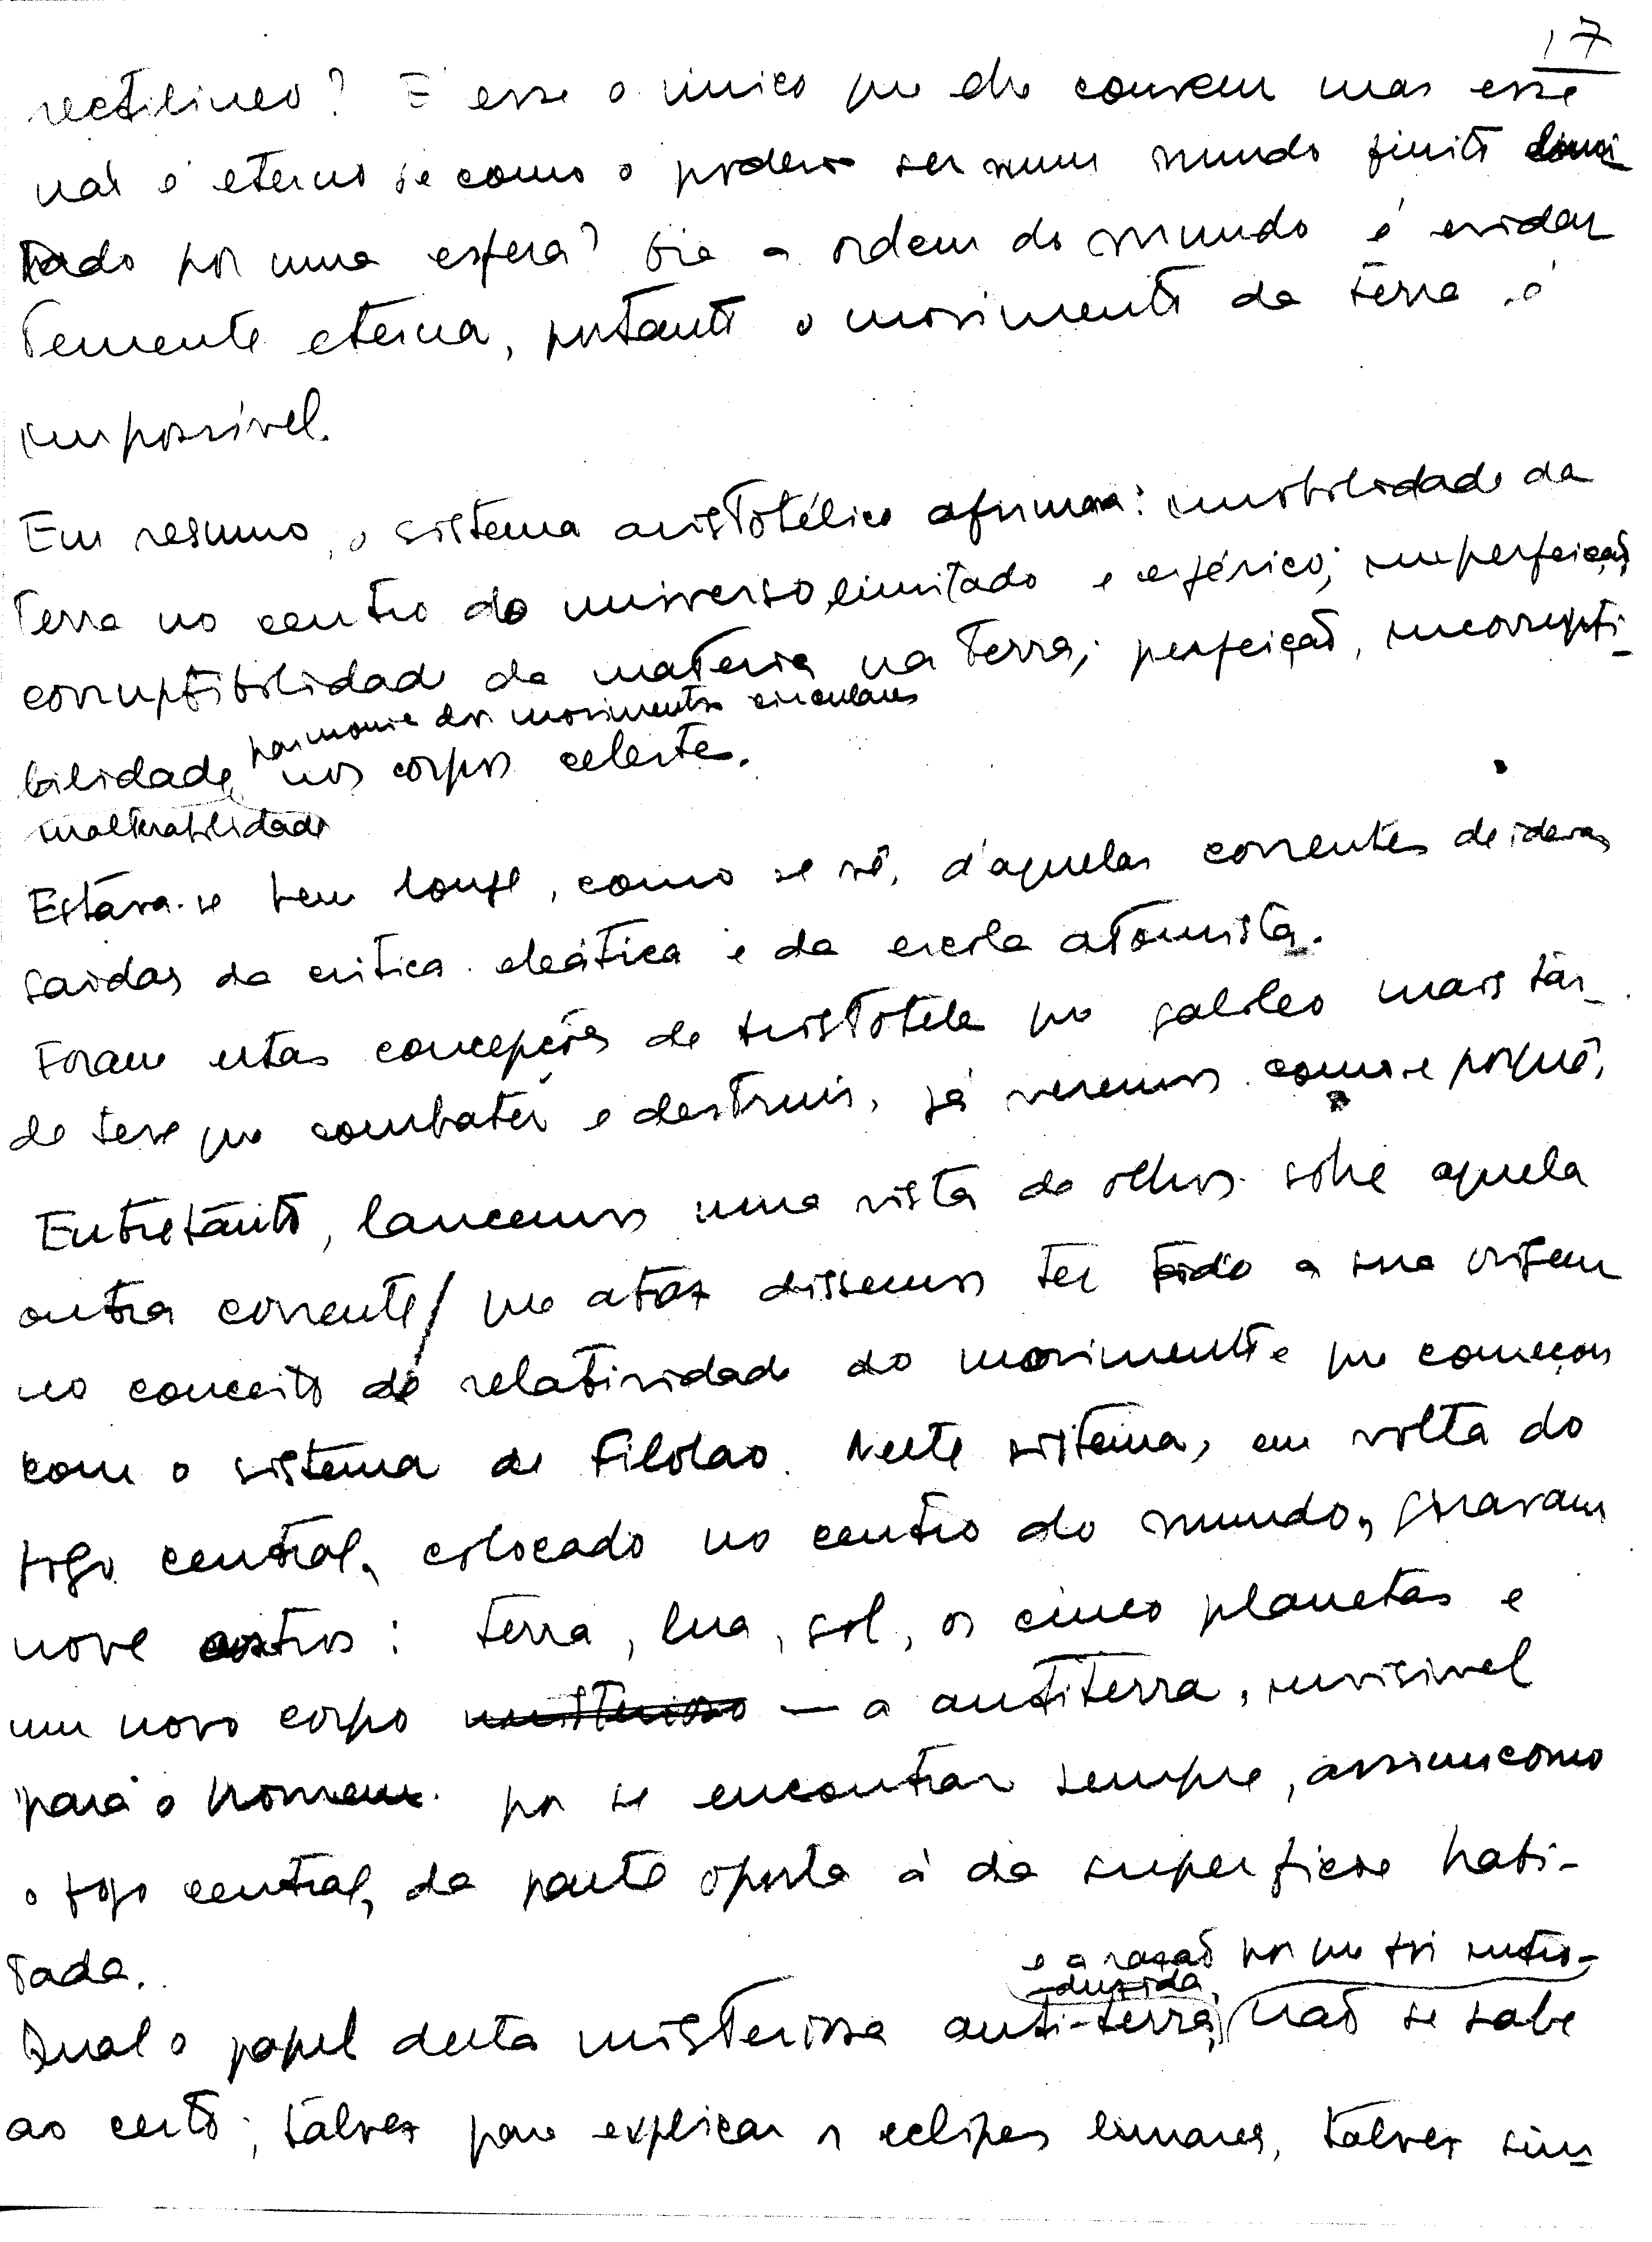 17
rectilineo? É esse o unico que lhe convem mas esse
não é eterno; e como o poderia ser num mundo finito limi
tado por uma esfera? Ora a ordem do mundo é eviden
temente eterna, portanto o movimento da terra é
impossível.
Em resumo, o sistema aristotélico afirma: imobilidade da
Terra no centro do universo, limitado e esférico; imperfeição,
corruptibilidade da materia na Terra; perfeição, incorrupti-
harmonia dos movimentos circulares
bilidade, nos corpos celestes.
inalterabilidade
Estava-se bem longe, como se vê, d'aquelas correntes de ideias
saidas da critica eleática e da escola atomista.
Foram estas concepções de Aristoteles que Galileo mais tar-
de teve que combater e destruir, já veremos como e porquê.
Entretanto, lancemos uma vista de olhos sobre aquela
outra corrente que atraz dissemos ter tido a sua origem
no conceito de relatividade do movimento e que começou
com o sistema de Filolao. Neste sistema, em volta do
fogo central, colocado no centro do mundo, giravam
nove astros: terra, lua, sol, os cinco planetas e
um novo corpo misterioso — a antiterra, invisivel
para o homem por se encontrar sempre, assim como
o fogo central, da parte oposta à da superficie habi-
tada.
e a razão por que foi intro-
duzida,
Qual o papel desta misteriosa anti-terra, não se sabe
ao certo; talvez para explicar os eclipses lunares, talvez sim